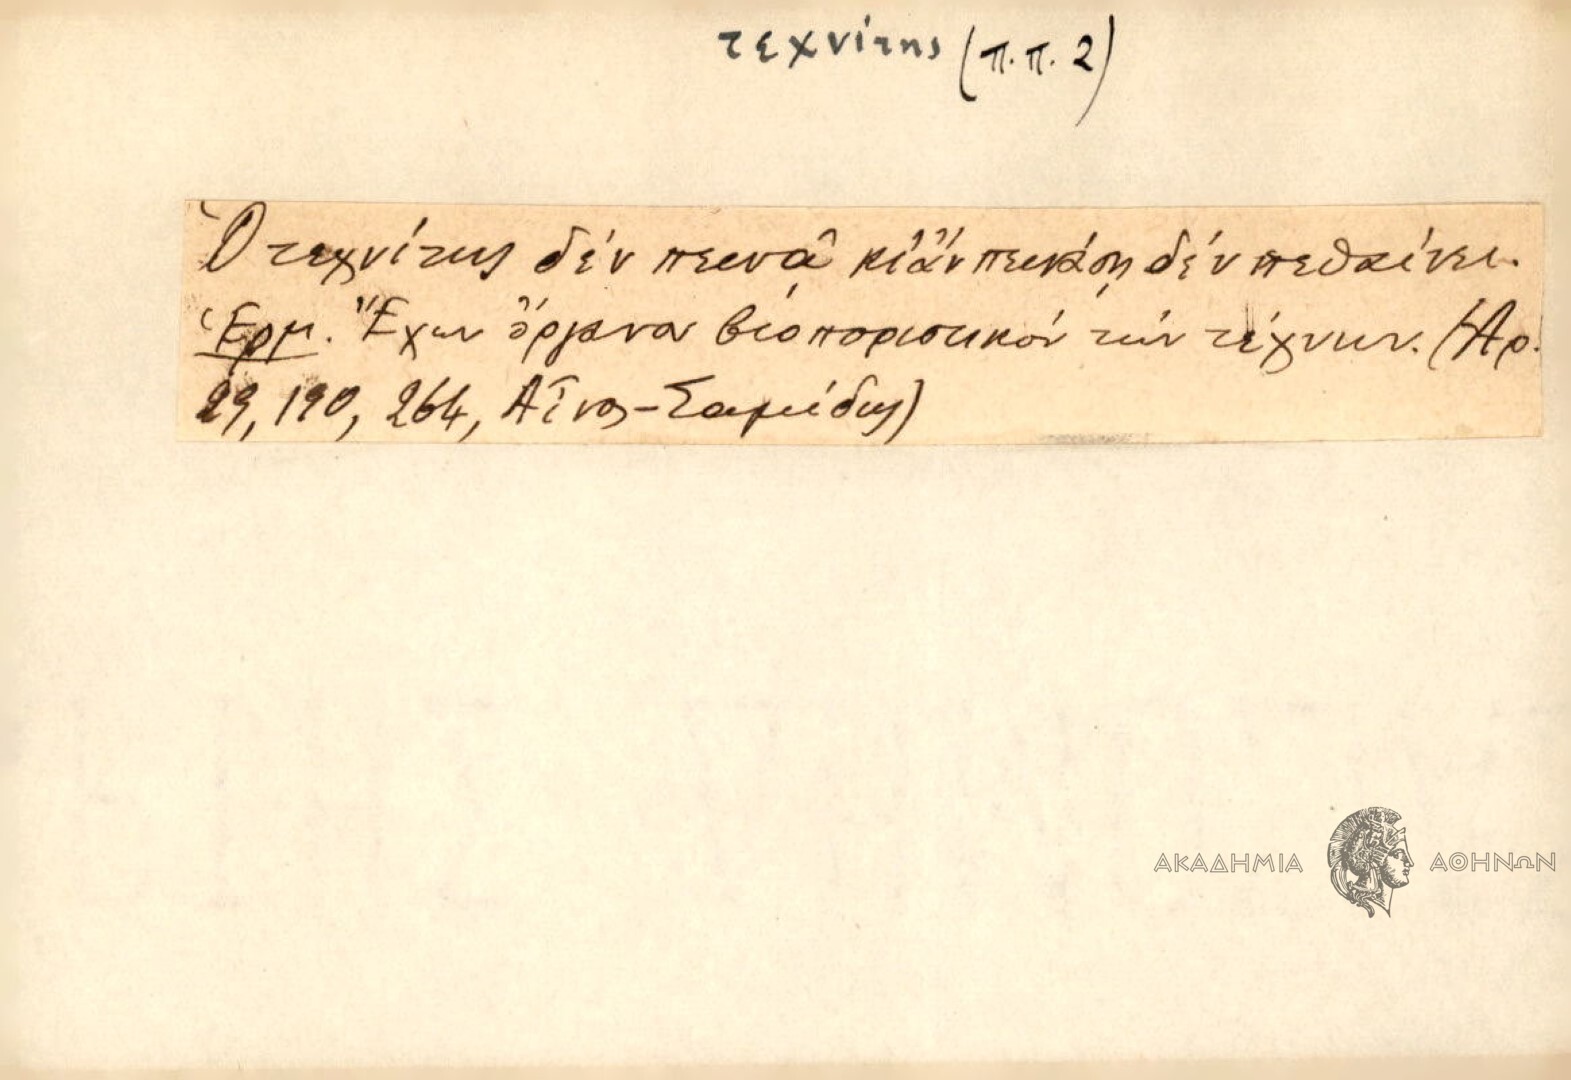 τεχνίτης (π.π. 2)
Ὁ τεχνίτης δέν πεινᾷ κι ἄν πεινάσῃ δέν πεθαίνει.
Ἑρμ. Ἔχων ὄργανον βιοποριστικόν τήν τέχνην. (Ἀρ.
29, 190, 264, Αἶνος - Σαμίδης)
ΑΚΑΔΗΜΙΑ ΑΘΗΝΩΝ